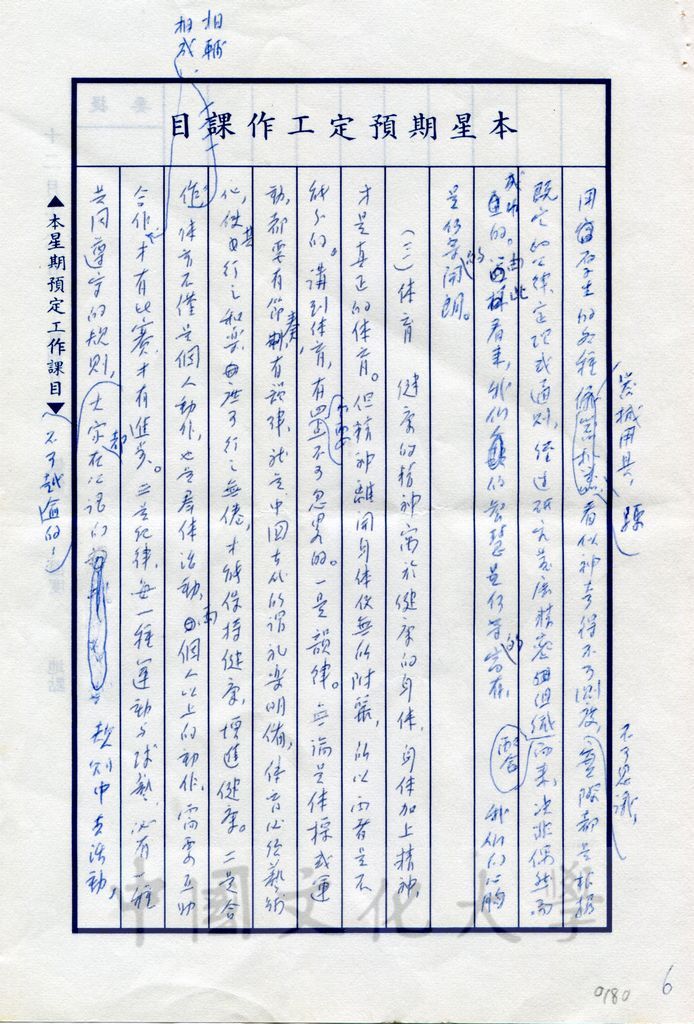 相輔
相成
本星期預定工作課目
器械用具,
不可思議,
用
學生的各種
看似神奇得不可測度,實際都是根據
既定的公律定理或通則,經過研究發展精密組織而來,決非偶然而
成功的。由此看來,我們的智慧是何等的富有,我們的心胸
是何等的開朗。
(三)體育 健康的精神寓於健康的身体,身体加上精神,
才是真正的体育。但精神離開身体便無所附麗,所以兩者是不
可分的。講到体育,有不可忽略的。一是韻律。無論是体操或運
動,都要有節奏,有韻律,就是中國古代所謂禮樂明備,体育必經藝術
化,使其行之和樂,庶可行之無倦,才能保持健康,增進健康。二是合
作,体育不僅是個人動作,也是群体活動,兩個人以上的動作,需要互助
合作,才有比賽,才有進步。三是紀律,每一種運動与球藝,必有一種
共同遵守的規則,大家都在公認的
規則中去活動,
不可越逾的!
▲本星期預定工作課目▼
中國文化大學
0180
6